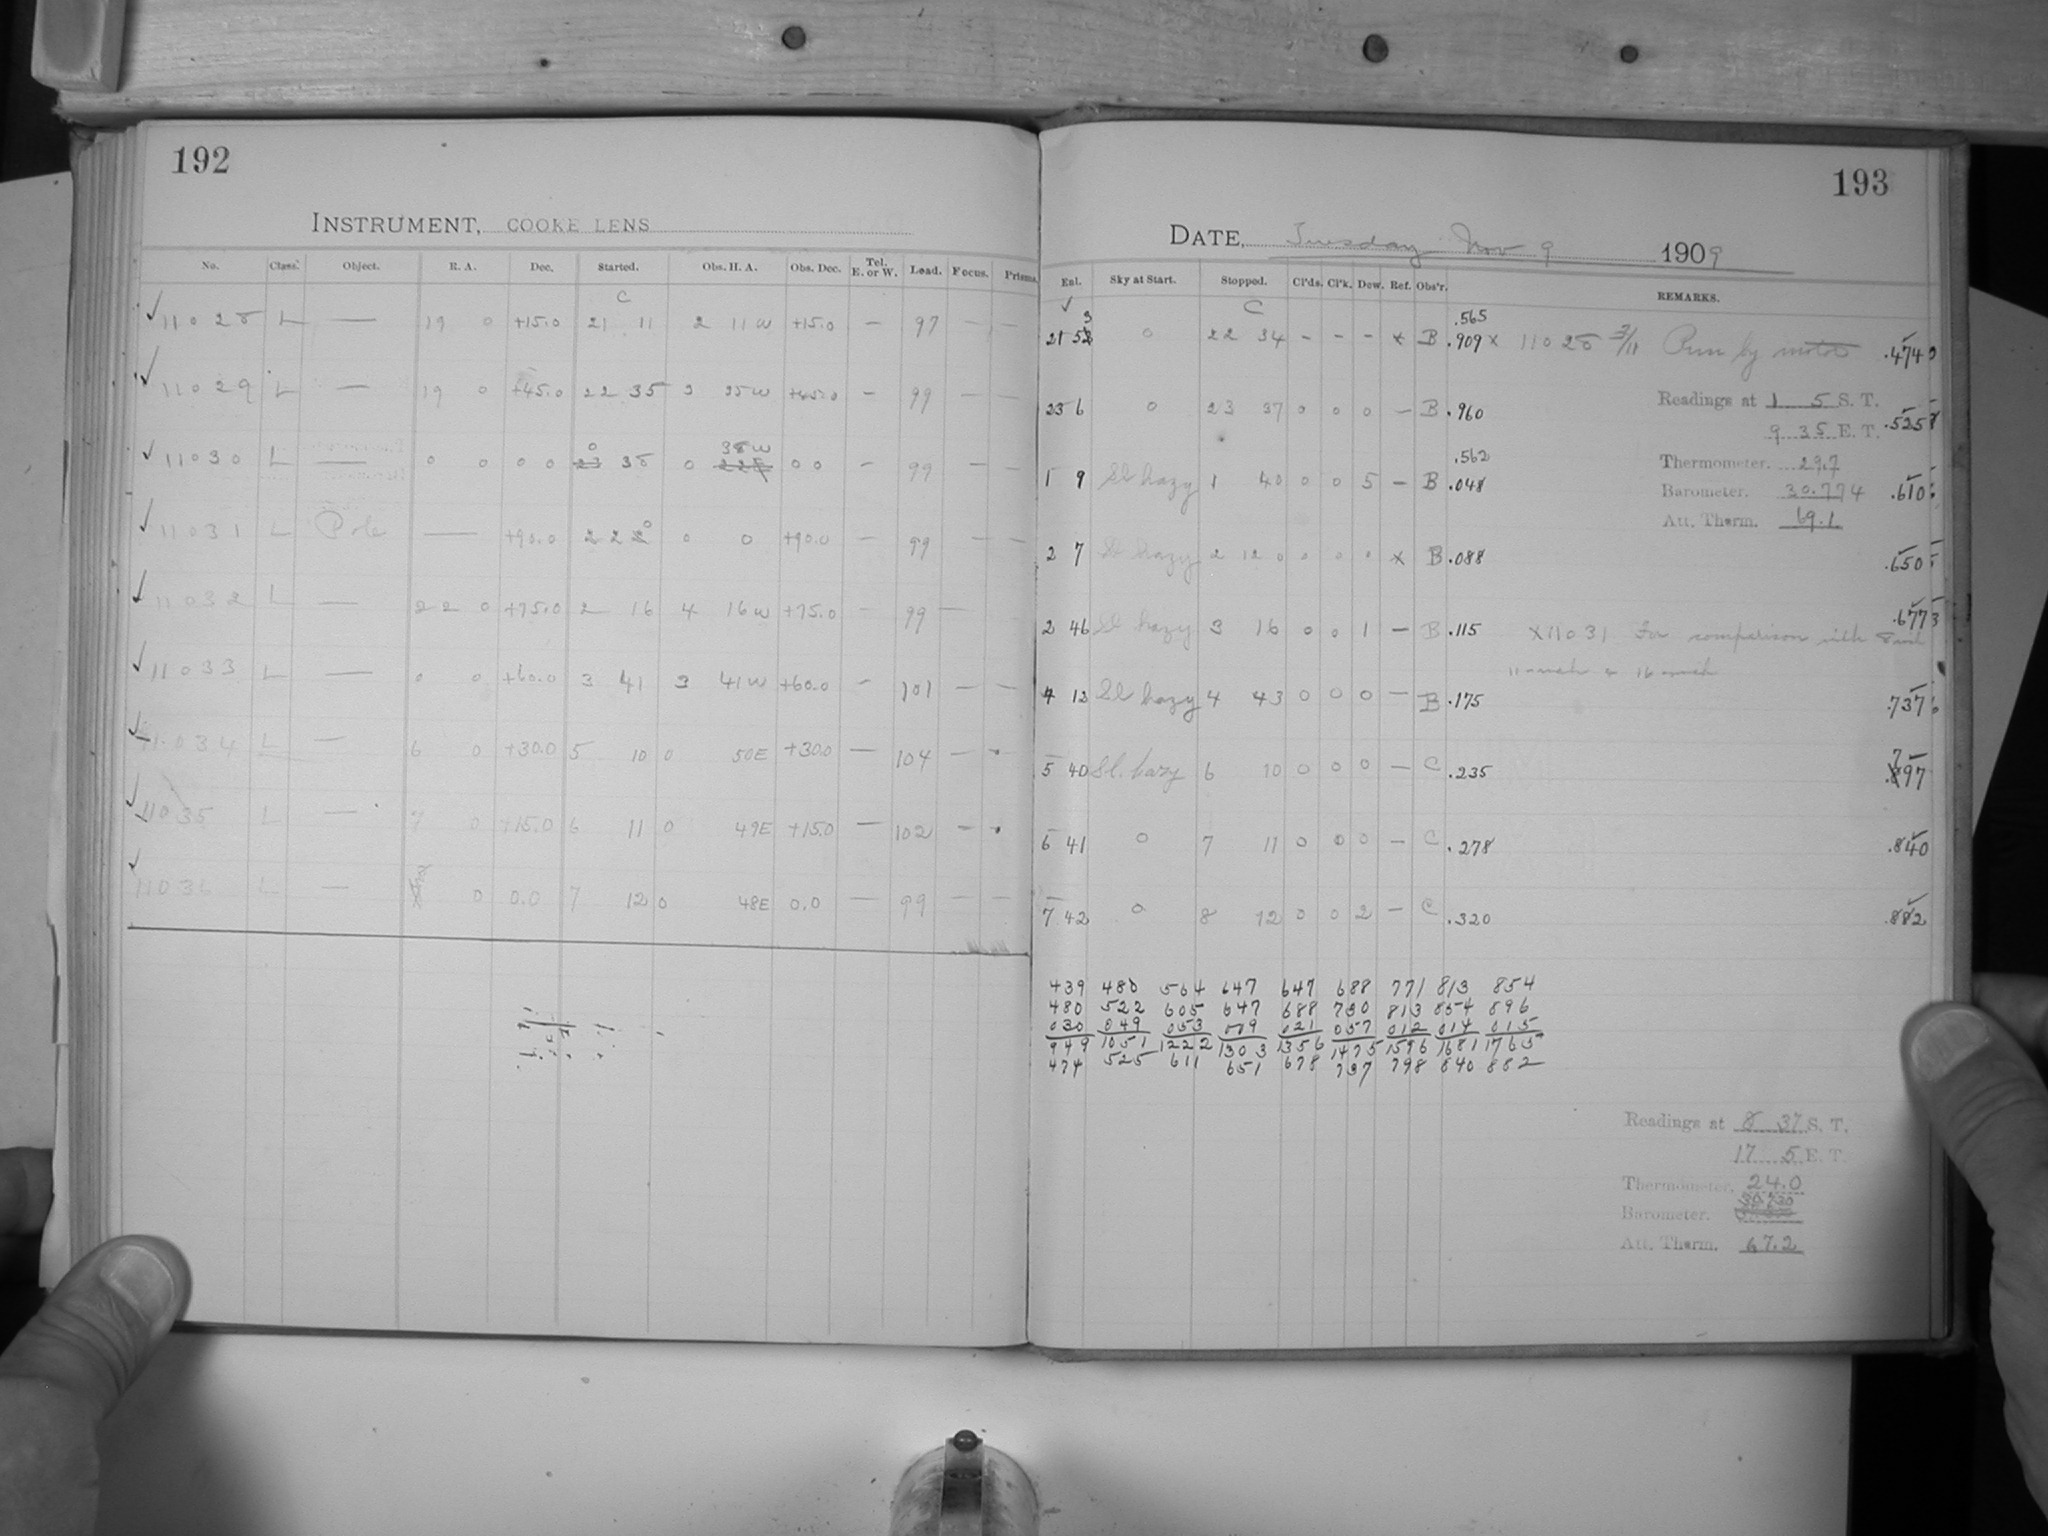 192
INSTRUMENT, COOKE LENS
No. Class. Object. R. A. Dec. Started. Obs. H. A. Obs. Dec. Tel. E. or W. Load. Focus. Prisms.
C
✓ 11028 L — 19 0 +15.0 21 11 2 11W +15.0 — 97 — —
✓ 11029 L — 19 0 +45.0 22 35 3 35W +45.0 — 99 — —
0 38W
✓ 11030 L — 0 0 0 0 23 38 0 0 0 — 99 — —
✓ 11031 L Pole — +90.0 2 2 0 0 0 +90.0 — 99 — —
✓ 11032 L — 22 0 +75.0 2 16 4 16W +75.0 — 99 —
✓ 11033 L — 0 0 +60.0 3 41 3 41W +60.0 — 101 — —
✓ 11034 L — 6 0 +30.0 5 10 0 50E +30.0 — 104 —
✓ 11035 L — 7 0 +15.0 6 11 0 49E +15.0 — 102 —
✓ 11036 L — 0 0.0 7 12 0 48E 0.0 — 99 — —
193
DATE, Tuesday Nov 9 1909
Enl. Sky at Start. Stopped. Cl'ds. Cl'k. Dew. Ref. Obs'r. REMARKS.
✓ C
3 .565
21 52 0 22 34 - - - x B .909 x 11028 3/11 Run by motor .474
23 6 0 23 37 0 0 0 — B .960 .525
Readings at 1 5 S. T.
9 35 E. T.
.562
1 9 Sl hazy 1 40 0 0 5 — B .048 .610
Thermometer. 29.7
Barometer. 30.774
Att. Therm. 69.1
2 7 Sl hazy 2 12 0 0 0 0 x B .088 .650
2 46 Sl hazy 3 16 0 0 1 — B .115 x11031 For comparison with 8 inch .677
11 inch & 16 inch
4 12 Sl hazy 4 43 0 0 0 — B .175 .737
7
5 40 Sl. hazy 6 10 0 0 0 — C .235 .897
6 41 0 7 11 0 0 0 — C .278 .840
7 42 0 8 12 0 0 2 — C .320 .882
439 480 564 647 647 688 771 813 854
480 522 605 647 688 730 813 854 896
030 049 053 009 021 057 012 014 015
949 1051 1222 1303 1356 1475 1596 1681 1765
474 525 611 651 678 737 798 840 882
Readings at 8 37 S. T.
17 5 E. T.
Thermometer. 24.0
Barometer.
Att. Therm. 67.2